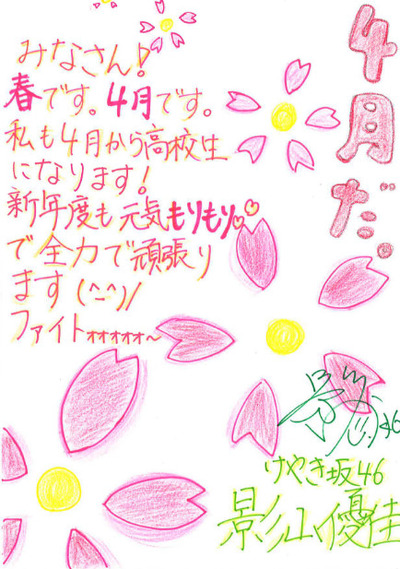 ４月だ。
みなさん！
春です。４月です。
私も４月から高校生
になります！
新年度も元気もりもり♡♡
で全力で頑張り
ます(^-^)/
ファイトォォォォォ〜
けやき坂46
影山優佳